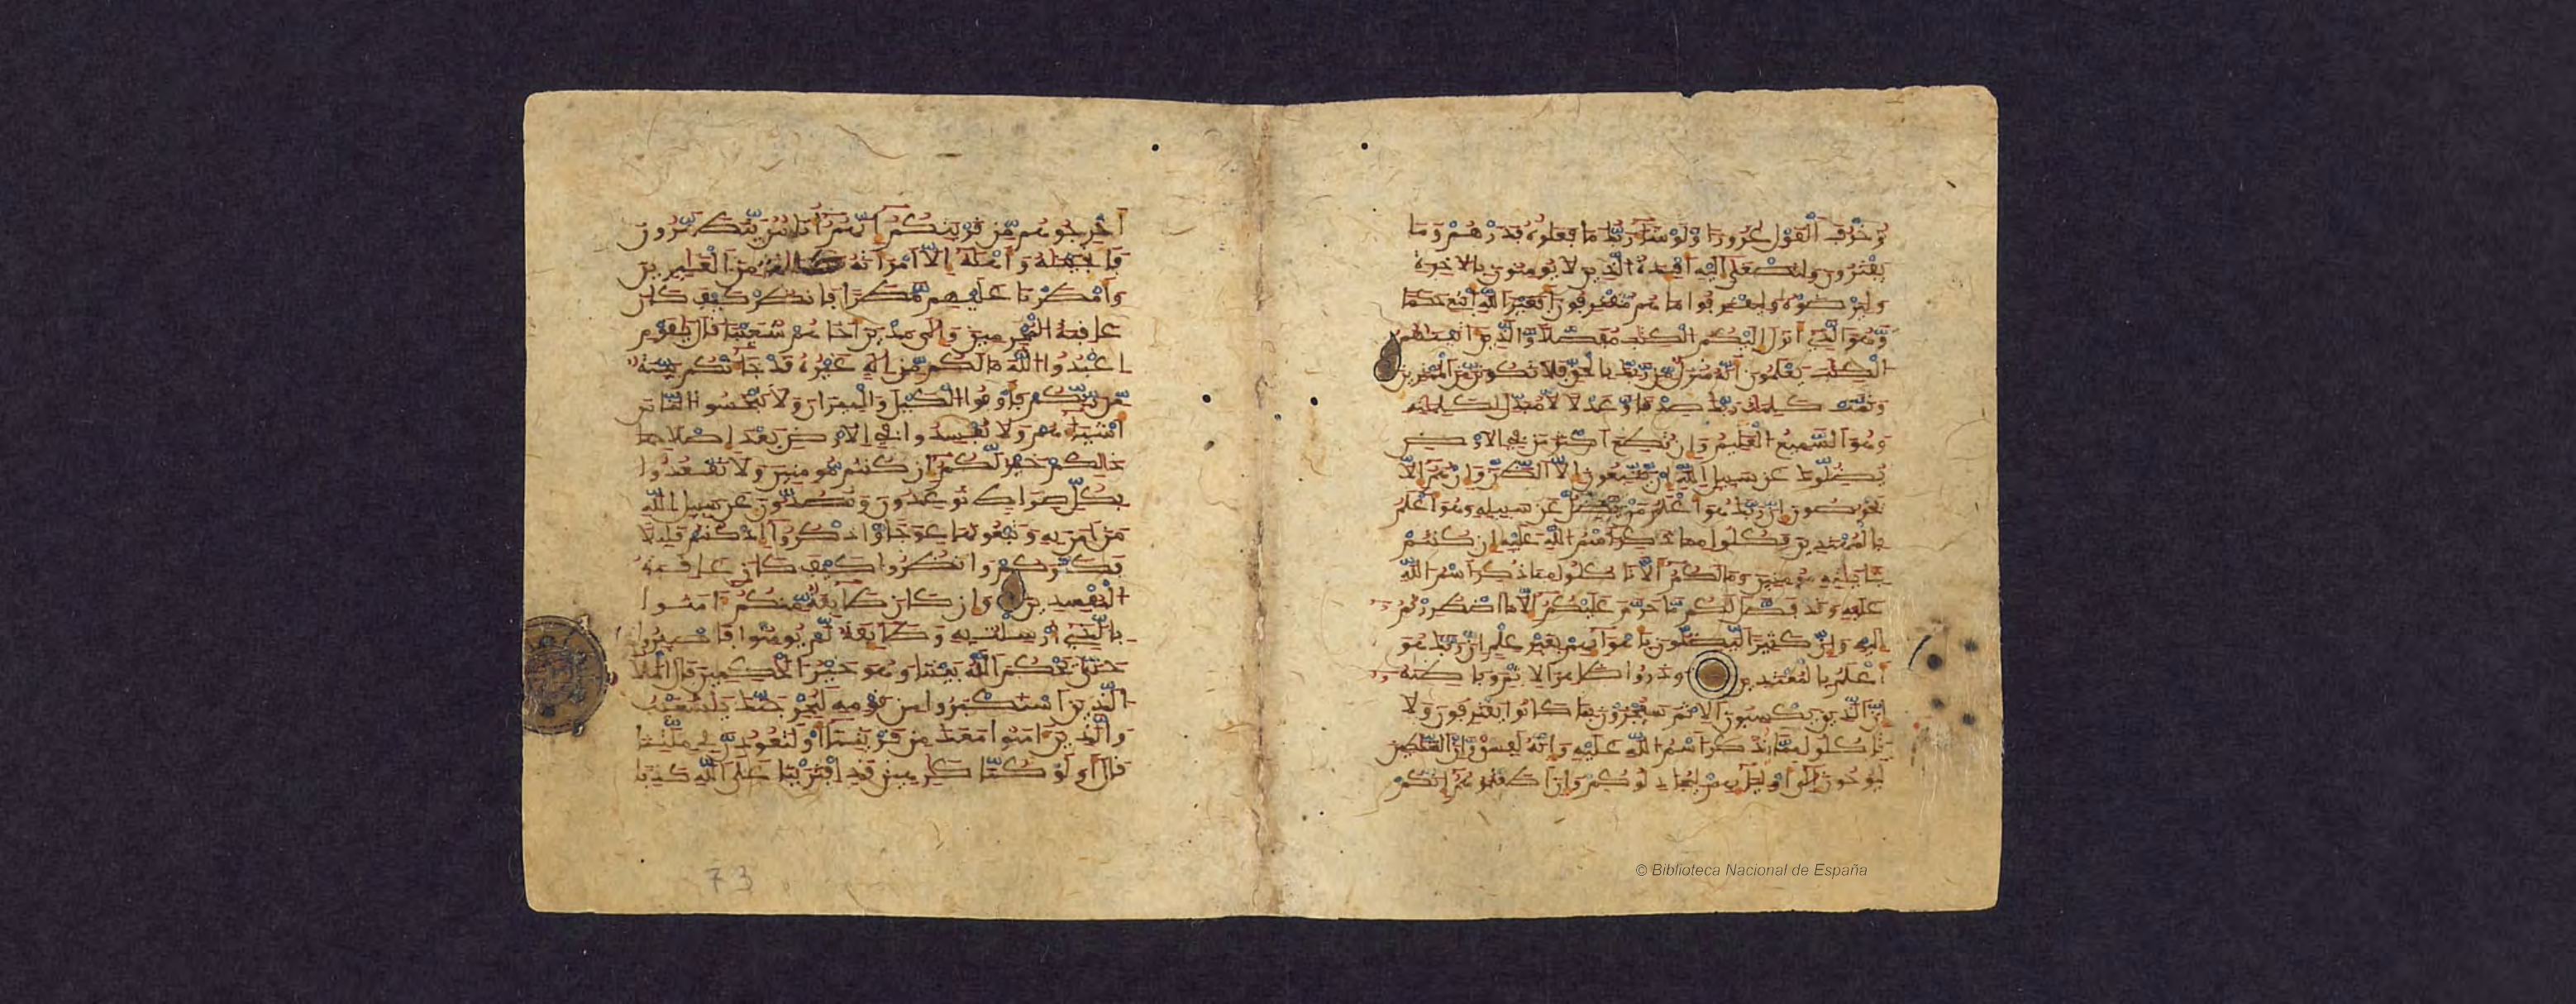 زخرف القول غرورا ولو شا ربك ما فعلوه فذرهم وما
يفترون ولتصغى اليه افـدة الذين لا يومنون بالاخرة
وليرضوه وليقترفوا ما هم مقترفون افغير الله ابتغى حكما
وهو الذى انزل اليكم الكتب مفصلا والذين اتينهم
الكتب يعلمون انه منزل من ربك بالحق فلا تكونن من الممترين
وتمت كلمت ربك صدقا وعدلا لا مبدل لكلمته
وهو السميع العليم وان تطع اكثر من فى الارض
يضلوك عن سبيل الله ان يتبعون الا الظن وان هم الا
يخرصون ان ربك هو اعلم من يضل عن سبيله وهو اعلم
بالمهتدين فكلوا مما ذكر اسم الله عليه ان كنتم
بـايته مومنين وما لكم الا تاكلوا مما ذكر اسم الله
عليه وقد فصل لكم ما حرم عليكم الا ما اضطررتم
اليه وان كثيرا ليضلون باهوايهم بغير علم ان ربك هو
اعلم بالمعتدين وذروا ظهر الاثم وباطنه
ان الذين يكسبون الاثم سيجزون بما كانوا يقترفون ولا
تاكلوا مما لم يذكر اسم الله عليه وانه لفسق وان الشيطين
ليوحون الى اوليايهم ليجدلوكم وان اطعتموهم انكم
© Biblioteca Nacional de España
اخرجوهم من قريتكم انهم اناس يتطهرون
فانجينه واهله الا امراته كانت من الغبرين
وامطرنا عليهم مطرا فانظر كيف كان
عقبة المجرمين والى مدين اخاهم شعيبا قال يقوم
اعبدوا الله ما لكم من اله غيره قد جاتكم بينة
من ربكم فاوفوا الكيل والميزان ولا تبخسوا الناس
اشياهم ولا تفسدوا فى الارض بعد اصلحها
ذلكم خير لكم ان كنتم مومنين ولا تقعدوا
بكل صراط توعدون وتصدون عن سبيل الله
من امن به وتبغونها عوجا واذكروا اذ كنتم قليلا
فكثركم وانظروا كيف كان عقبة
المفسدين وان كان طايفة منكم امنوا
بالذى ارسلت به وطايفة لم يومنوا فاصبروا
حتى يحكم الله بيننا وهو خير الحكمين قال الملا
الذين استكبروا من قومه لنخرجنك يشعيب
والذين امنوا معك من قريتنا او لتعودن فى ملتنا
قال اولو كنا كرهين قد افترينا على الله كذبا
73